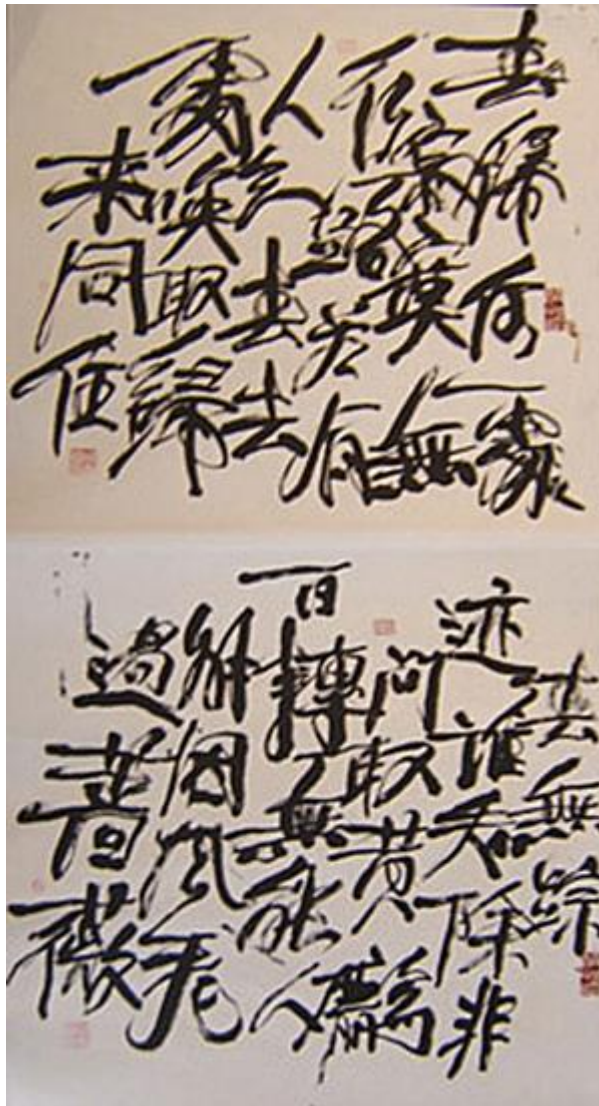 春歸何處
寂寞無
行路若有
人知春去
處喚取歸
来同住
春無踪
迹誰知除非
问取黄鸝
百囀無能人
解因風飛
過薔薇